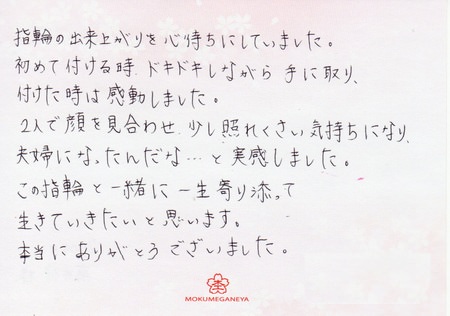 指輪の出来上がりを心待ちにしていました。
初めて付ける時 ドキドキしながら 手に取り、
付けた時は感動しました。
2人で顔を見合わせ 少し照れくさい気持ちになり、
夫婦になったんだな…と実感しました。
この指輪と一緒に一生寄り添って
生きていきたいと思います。
本当にありがとうございました。
MOKUMEGANEYA